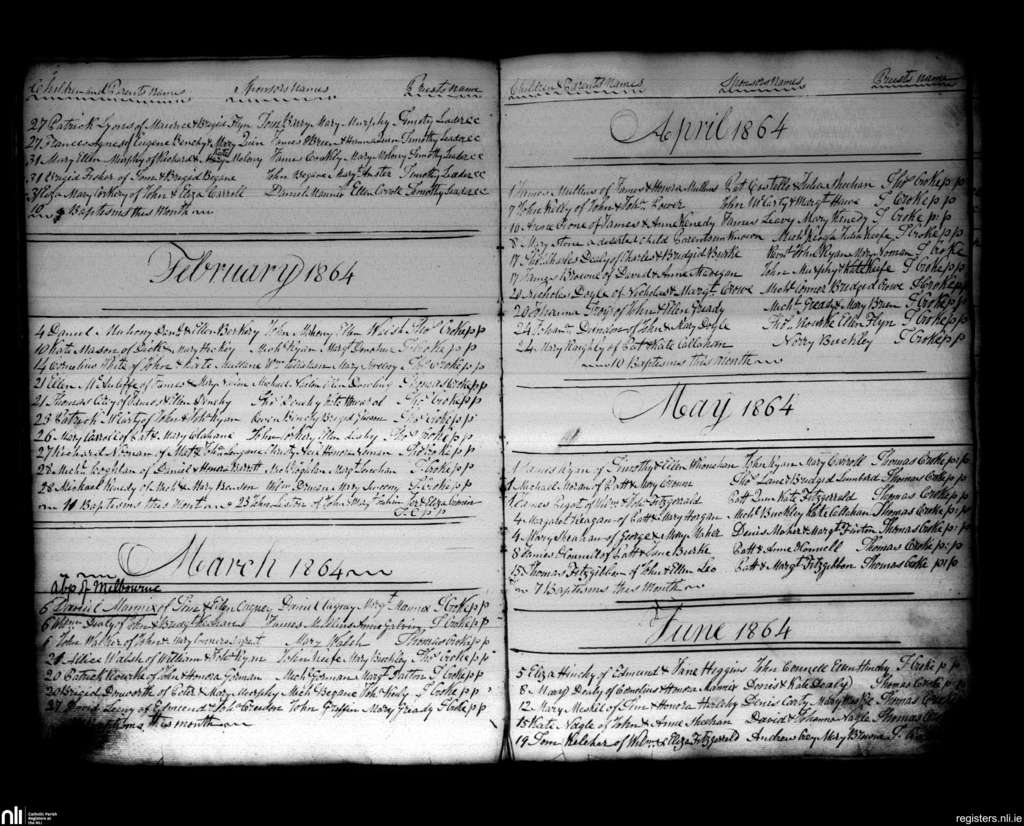 Children and Parents Name Sponsors Names Priests Name
27 Patrick Lynes of Maurice & Brigid Flyn Tom Barry Mary Murphy Timothy Leader CC
27 Frances Lynes of Eugene & Mary Quin James OBrien & Hanna Quin Timothy Leader CC
31 Mary Ellen Murphy of Richard & Molony James Coakly Mary Molony Timothy Leader CC
31 Brigid of Tom & Brigid Begane John Begane Mary Timothy Leader CC
31 Eliza Mary Corkery of John & Eliza Carroll Daniel Mannix Ellen Timothy Leader CC
10 Baptisms this Month
February 1864
4 Daniel Mahony Danl & Ellen Berkery John Mahony Ellen Walsh Thos Croke p p
10 Kate Mason of Dick Mary Hickey Michl Ryan Margt Donohue T Croke p p
14 Cornelius White of John & Kate Wm Callahan Mary Thos Croke p p
21 Ellen McAuliffe of James & Mary Michael Ellen Dowling Thomas Croke p p
21 Thomas of James & Ellen Binchy Thos Binchy Kate Howard Thos Croke p p
23 Patrick McCarty of John & Johh Ryan Binchy Thos Croke p p
26 Mary Carroll of Patt & Mary Colahane John Ellen Leahy Thos Croke p p
27 Richard Noonan of Matt & Christy Honora Thos Croke p p
28 Michl Coghlan of Daniel & Honora Barrett Coghlan Margt Linehan T Croke p p
28 Michael Kenedy of Mich & Mary Wilm Mary Sweeny T Croke p p
11 Baptisms this Month 23 John Liston of John & Mary & Eliza Cronin
T. C p p
March 1864
Abp of Melbourne
6 Daniel Mannix of Tim & Ellen Cagney Daniel Cagney Margt Mannix T Croke p p
6 Dealy of John & Bridgt Meehan James Mullins Anne T. Croke p p
6 John Walker of John & Mary Mary Walsh Thomas Croke p p
20 Alice Walsh of William & Johh Ryan John Keefe Mary Buckley Thos Croke p p
20 Patrick Rourke of John & Honora Gorman Mich Gorman Margt Dalton T Croke p p
20 Brigid of & Mary Murphy Mich Begane Johh T Croke p p
27 David Leary of Edmond & Johh John Griffin Mary Gready T Croke p p
this month
Children & Parents Names Sponsors Names Priests Name
April 1864
1 Mullins of James & Honora Mullins Pat Costello & Julia Sheehan Thos Croke p p
7 John Kelly of John & Johh Power John McCarty & Margt Hawe T Croke p p
10 Anne of James & Anne Kenedy James Leary Mary Kenedy T Croke p p
8 Mary Stone a deserted child Parents unknown Mich Keogh Julia Keefe T Croke p p
17 Thos Charles Dealy of Charles & Bridgid Burke John Ryan Mary Noonan T Croke
17 James Browne of David & Anne Madigan John Murphy Kate Keefe T Croke p p
20 Nicholas Doyle of Nicholas & Margt Crowe Michl Connor Bridgid Crowe T Croke p p
20 Johanna of John & Ellen Gready Michl Gready & Mary Bren T Croke p p
24 Johan Dundon of John & Mary Doyle Thos Rourke Ellen Flyn T Croke p p
24 Mary of Pat & Kate Callahan Norry Buckley T Croke p p
10 Baptisms this month
May 1864
1 James Ryan of Timothy & Ellen John Ryan Mary Carroll Thomas Croke p p
1 Michael Horan of Patt & Mary Cronin Thos Lane & Bridgid Lombard Thomas Croke p p
1 James Bagot of Wilm & Johh Fitzgerald Patt Quin Kate Fitzgerald Thomas Croke p p
4 Margaret Reagan of Patt & Mary Horgan Michl Buckley Kate Callahan Thomas Croke p p
4 Mary Meahan of George & Mary Maher Denis Maher & Margt Finton Thomas Croke p p
8 James O'Connell of Patt & Jane Burke Patt & Anne Connell Thomas Croke p p
15 Thomas Fitzgibbon of John & Ellen Leo Patt & Margt Fitzgibbon Thomas Croke p p
7 Baptisms this Month
June 1864
5 Eliza Hinchy of Edmund & Jane Higgins John Connell Ellen Hinchy T. Croke p p
8 Mary Dealy of Cornelius & Honora Mannix Denis & Kate Dealy Thomas Croke p
12 Mary Meskel of Tim & Honora Herlehy Denis Carty Mary Thomas
15 Kate Nagle of John & Anne Sheehan David & Thomas
19 Tom Kelehar of Wilm & Eliza Fitzgerald Andrew Mary Browne T.
nli
Catholic Parish
Registers at
the NLI
registers.nli.ie